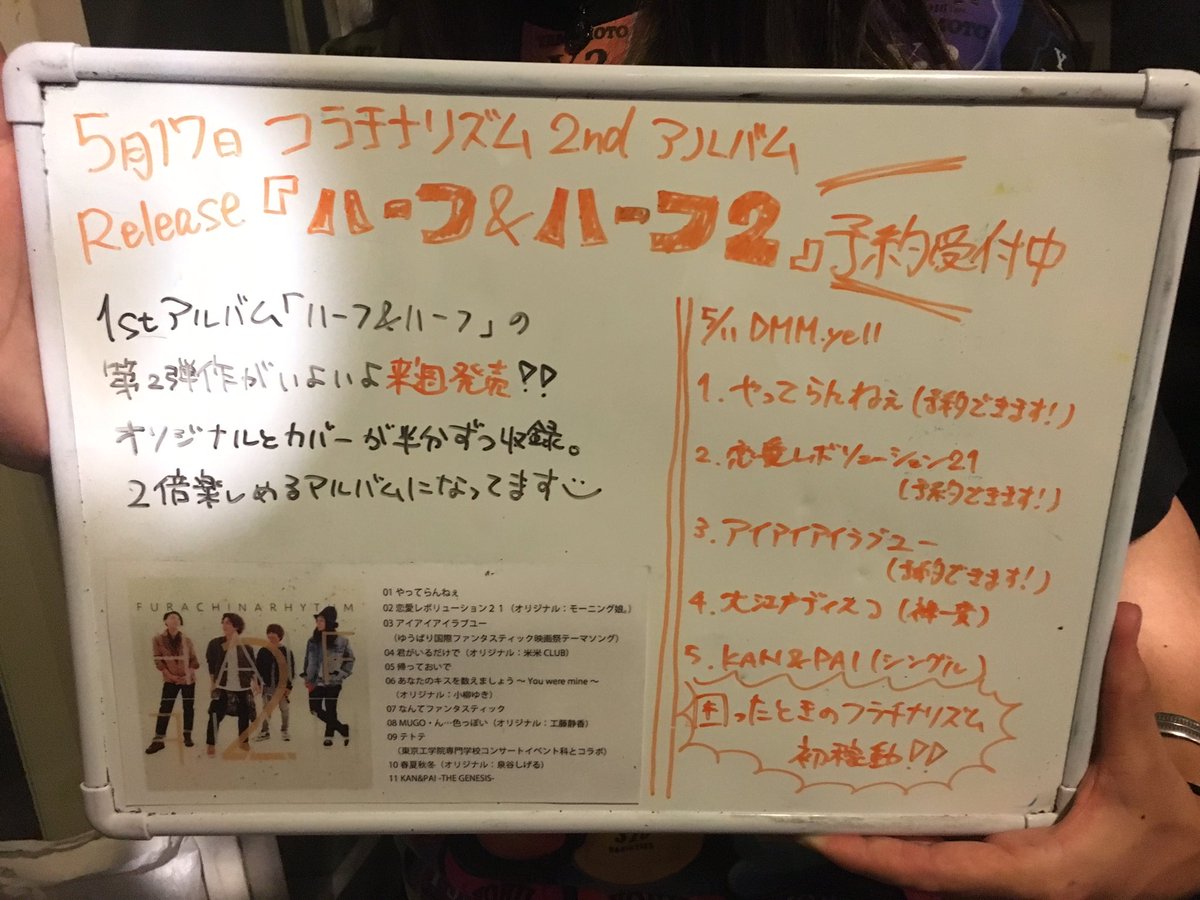 5月17日 フラチナリズム 2nd アルバム
Release『ハーフ&ハーフ2』予約受付中
1stアルバム「ハーフ&ハーフ」の
第2弾作がいよいよ来週発売!!
オリジナルとカバーが半分ずつ収録。
2倍楽しめるアルバムになってます
FURACHINARHYTHM
01 やってらんねぇ
02 恋愛レボリューション21（オリジナル：モーニング娘。）
03 アイアイアイラブユー
（ゆうばり国際ファンタスティック映画祭テーマソング）
04 君がいるだけで（オリジナル：米米 CLUB）
05 帰っておいで
06 あなたのキスを数えましょう ～ You were mine ～
（オリジナル：小柳ゆき）
07 なんてファンタスティック
08 MUGO・ん…色っぽい（オリジナル：工藤静香）
09 テトテ
（東京工学院専門学校コンサートイベント科とコラボ）
10 春夏秋冬（オリジナル：泉谷しげる）
11 KAN&PAI -THE GENESIS-
5/11 DMM.yell
1. やってらんねぇ (予約できます!)
2. 恋愛レボリューション21
(予約できます!)
3. アイアイアイラブユー
(予約できます!)
4. 大江ナディスコ
5. KAN&PAI (シングル)
困ったときのフラチナリズム
初稼動!!